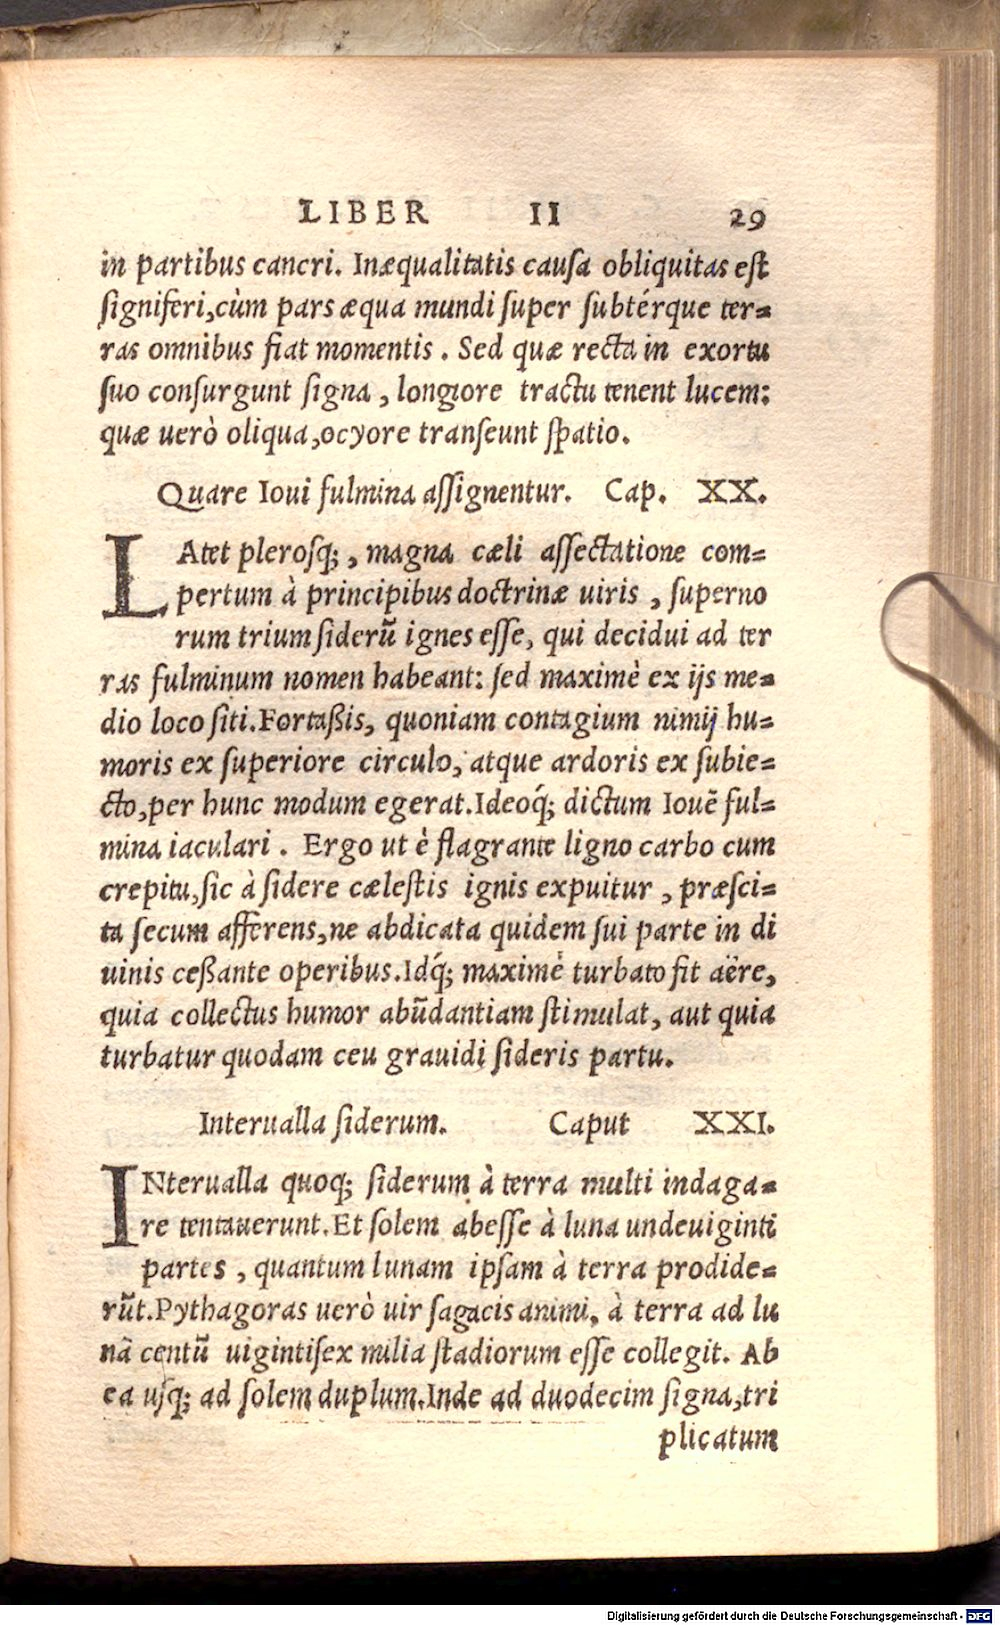 LIBER II 29
in partibus cancri. Inæqualitatis causa obliquitas est
signiferi,cùm pars æqua mundi super subtérque ter=
ras omnibus fiat momentis. Sed quæ recta in exortu
suo consurgunt signa, longiore tractu tenent lucem:
quæ uerò oliqua,ocyore transeunt spatio.
Quare Ioui fulmina assignentur. Cap. XX.
LAtet plerosq;, magna cæli assectatione com=
pertum à principibus doctrinæ uiris, superno
rum trium siderũ ignes esse, qui decidui ad ter
ras fulminum nomen habeant: sed maximè ex ijs me=
dio loco siti.Fortaßis, quoniam contagium nimij hu=
moris ex superiore circulo, atque ardoris ex subie=
cto,per hunc modum egerat.Ideoq́; dictum Iouẽ ful=
mina iaculari. Ergo ut è flagrante ligno carbo cum
crepitu,sic à sidere cælestis ignis expuitur, præsci=
ta secum afferens,ne abdicata quidem sui parte in di
uinis ceßante operibus.Idq́; maximè turbato fit aëre,
quia collectus humor abũdantiam stimulat, aut quia
turbatur quodam ceu grauidi sideris partu.
Interualla siderum. Caput XXI.
INterualla quoq; siderum à terra multi indaga=
re tentauerunt.Et solem abesse à luna undeuiginti
partes, quantum lunam ipsam à terra prodide=
rũt.Pythagoras uerò uir sagacis animi, à terra ad lu
nã centũ uigintisex milia stadiorum esse collegit. Ab
ea usq; ad solem duplum.Inde ad duodecim signa,tri
plicatum
Digitalisierung gefördert durch die Deutsche Forschungsgemeinschaft - DFG